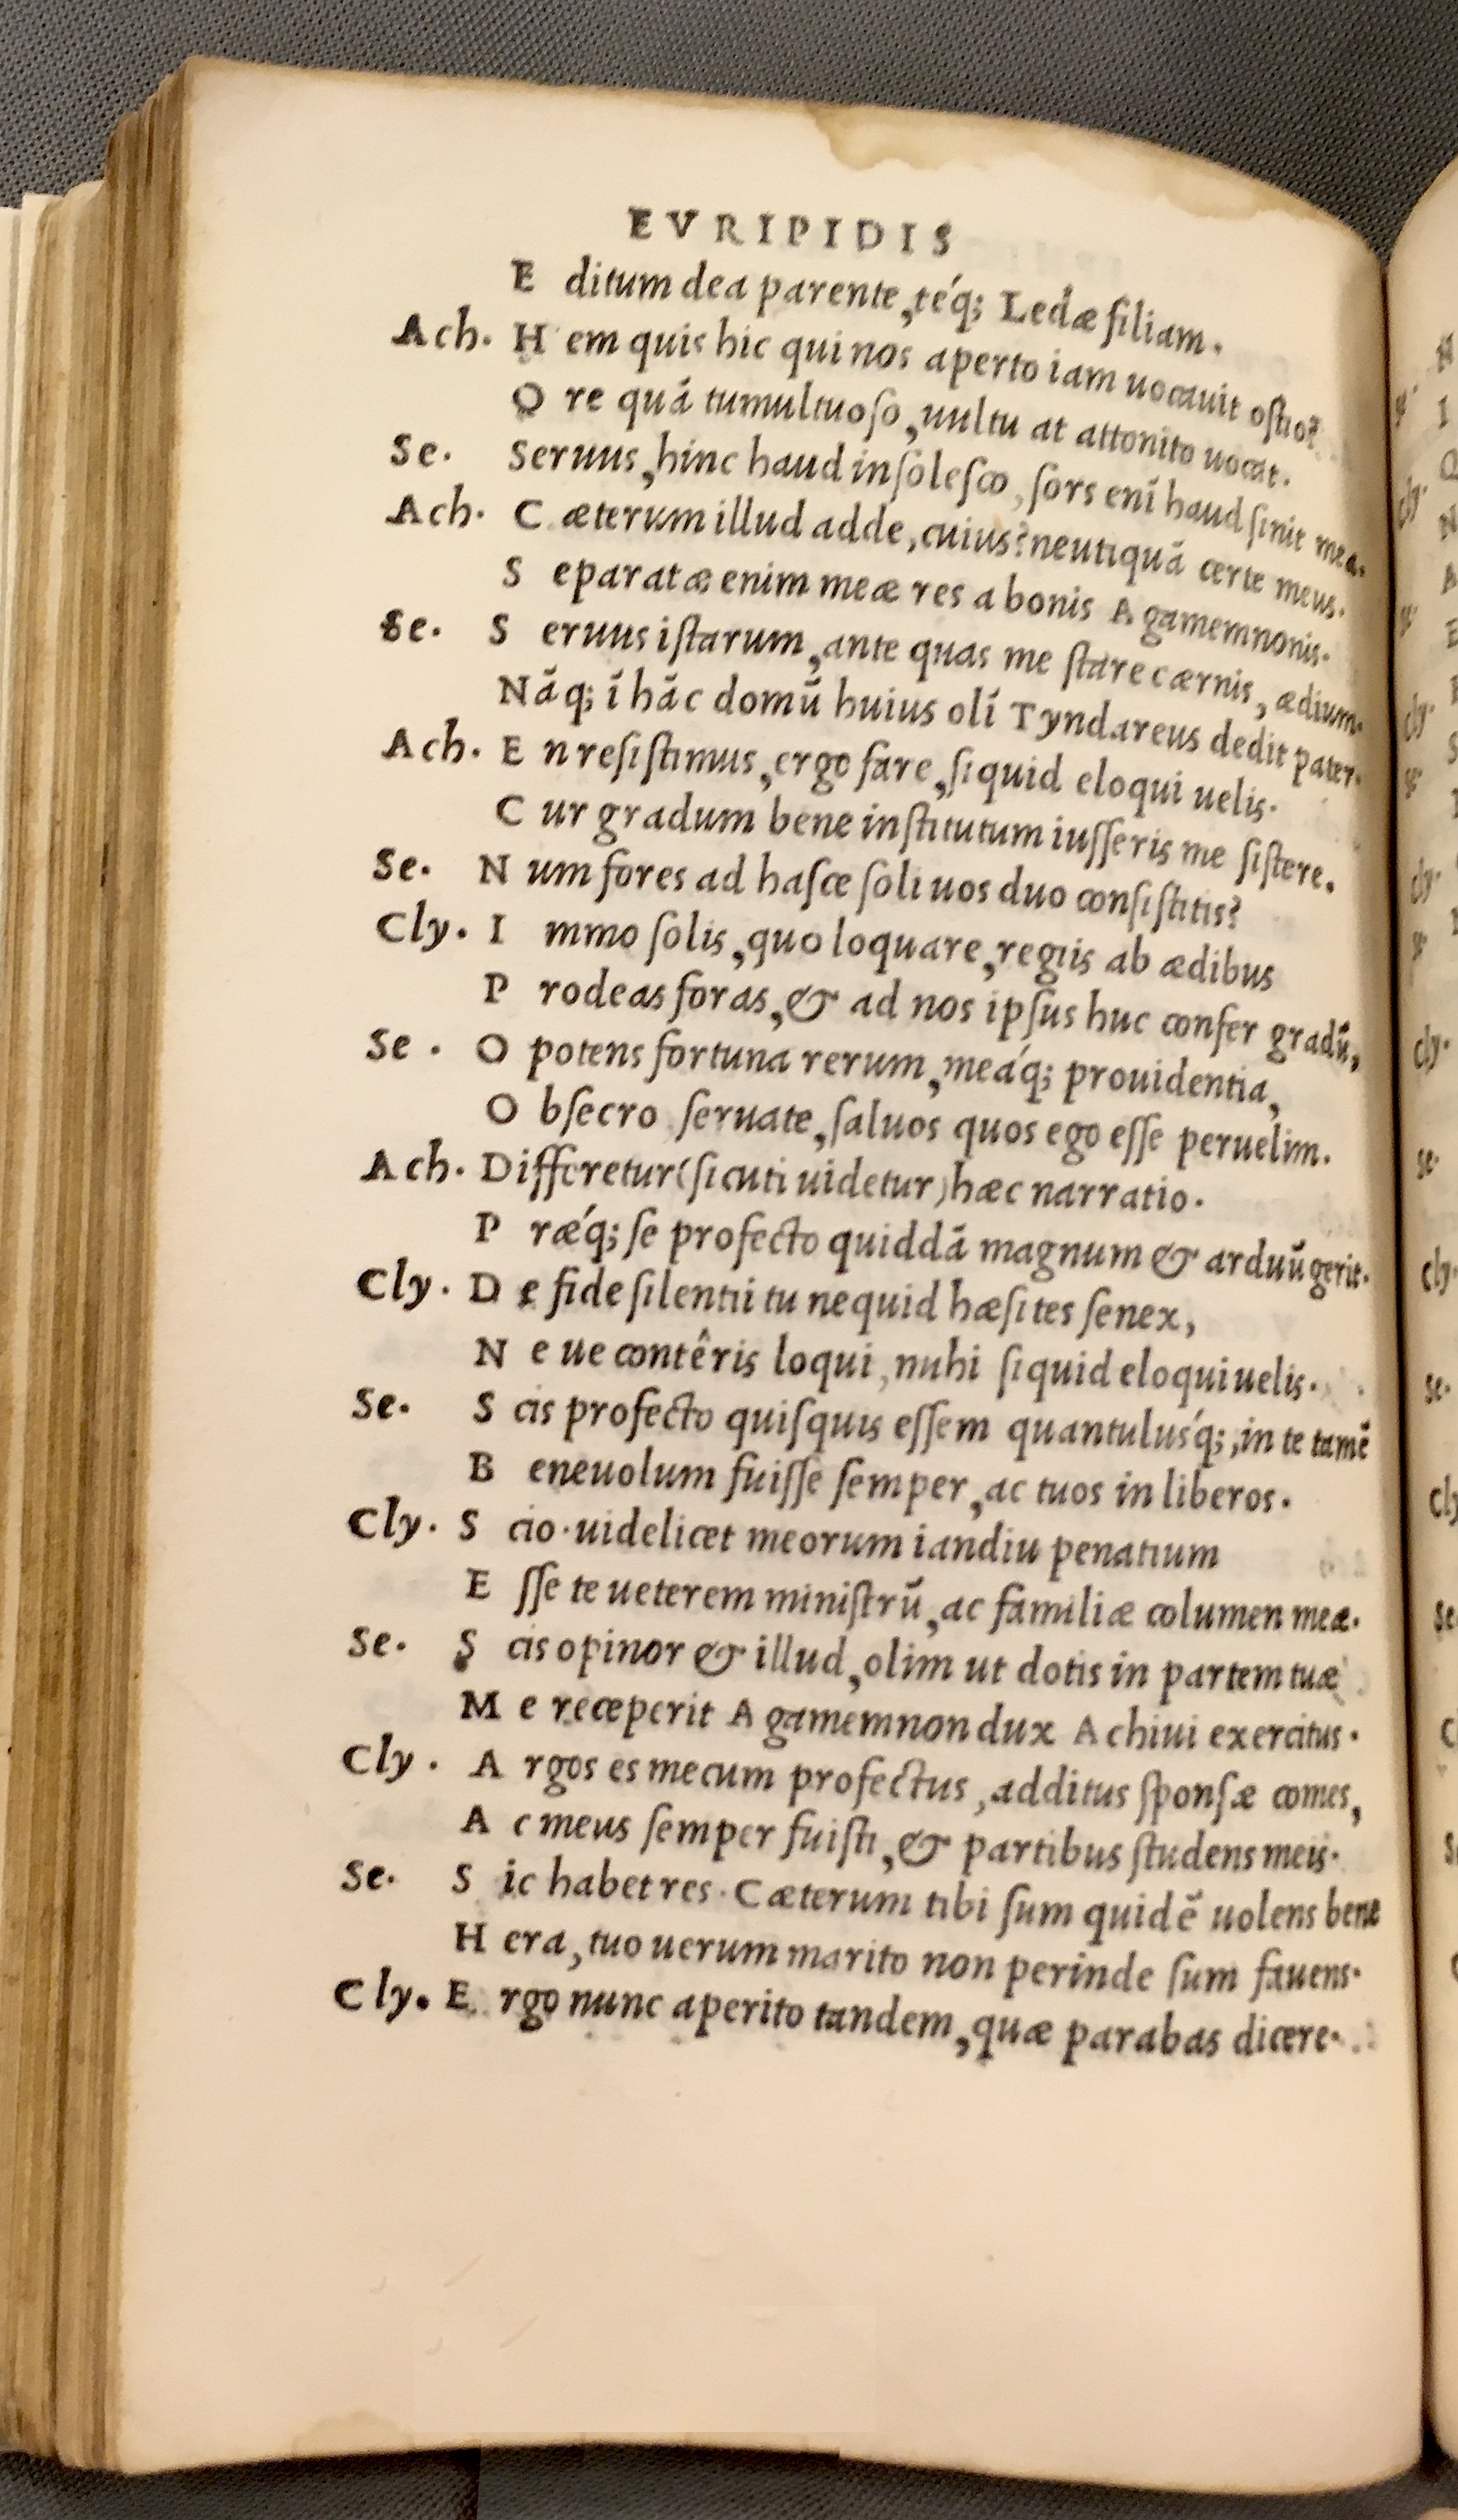 EVRIPIDIS
E ditum dea parente, téq; Ledæ filiam.
Ach. H em quis hic qui nos aperto iam uocauit oſtio?
O re quã tumultuoſo, uultu at attonito uocat.
Se. Seruus, hinc haud inſoleſco, ſors enĩ haud ſinit mea.
Ach. C æterum illud adde, cuius? neutiquã certe meus.
S eparatæ enim meæ res a bonis A gamemnonis.
Se. S eruus iſtarum, ante quas me ſtare cærnis, ædium.
Nãq; ĩ hãc domũ huius olĩ Tyndareus dedit pater.
Ach. E n reſiſtimus, ergo fare, ſi quid eloqui uelis.
C ur gradum bene inſtitutum iuſſeris me ſiſtere.
Se. N um fores ad haſce ſoli uos duo conſiſtitis?
Cly. I mmo ſolis, quo loquare, regiis ab ædibus
P rodeas foras, & ad nos ipſus huc confer gradũ,
Se. O potens fortuna rerum, meáq; prouidentia,
O bſecro ſeruate, ſaluos quos ego eſſe peruelim.
Ach. Differetur (ſicuti uidetur) hæc narratio.
P rǽq; ſe profecto quiddã magnum & arduũ gerit.
Cly. D e fide ſilentii tu nequid hæſites ſenex,
N e ue contêris loqui, mihi ſi quid eloqui uelis.
Se. S cis profecto quiſquis eſſem quantulusq́;, in te tamẽ
B eneuolum fuiſſe ſemper, ac tuos in liberos.
Cly. S cio. uidelicet meorum iandiu penatium
E ſſe te ueterem miniſtrũ, ac familiæ columen meæ.
Se. S cis opinor & illud, olim ut dotis in partem tuæ
M e receperit A gamemnon dux A chiui exercitus.
Cly. A rgos es mecum profectus, additus ſponſæ comes,
A c meus ſemper fuiſti, & partibus ſtudens meis.
Se. S ic habet res. Cæterum tibi ſum quidẽ uolens bene
H era, tuo uerum marito non perinde ſum fauens.
Cly. E rgo nunc aperito tandem, quæ parabas dicere.